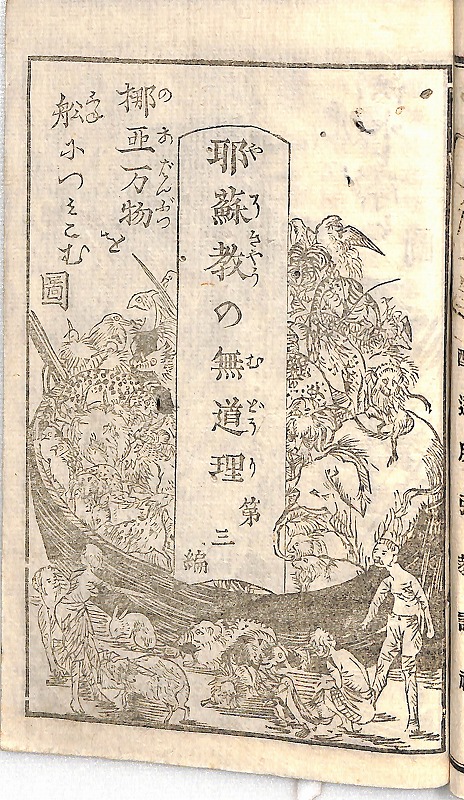 耶蘇教の無道理 第三編
挪亜万物を
舩につみこむ
圖